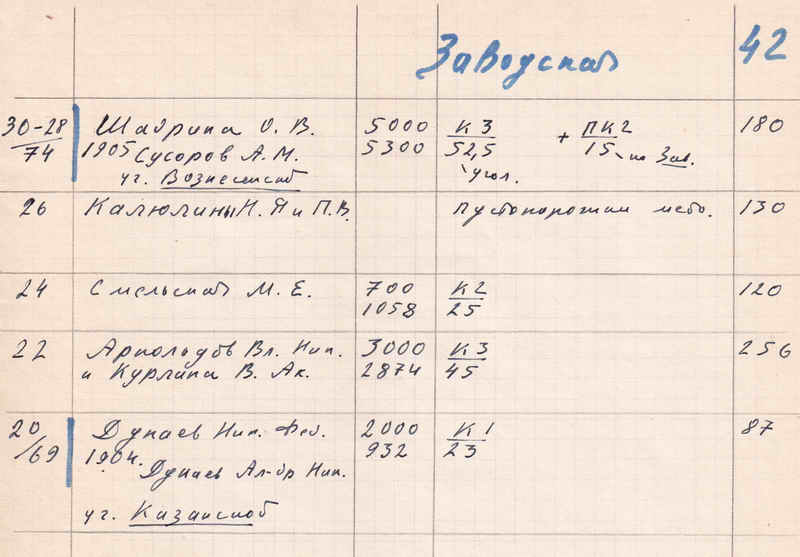 Заводская 42
30-28 Шадрина О. В. 5000 К3 + ПК2 180
74 1905 Сусоров А. М. 5300 52,5 15 по Зав.
уг. Вознесенской угол.
26 И. Я и П. В. Пустопорожнее место. 130
24 Смельская М. Е. 700 К2 120
1058 25
22 Арнольдов Вл. Ник. 3000 К3 256
и Курлина В. Ак. 2874 45
20 Дунаев Ник. Фед. 2000 К1 87
/69 1904. 932 23
Дунаев Ал-др Ник.
уг. Казанской